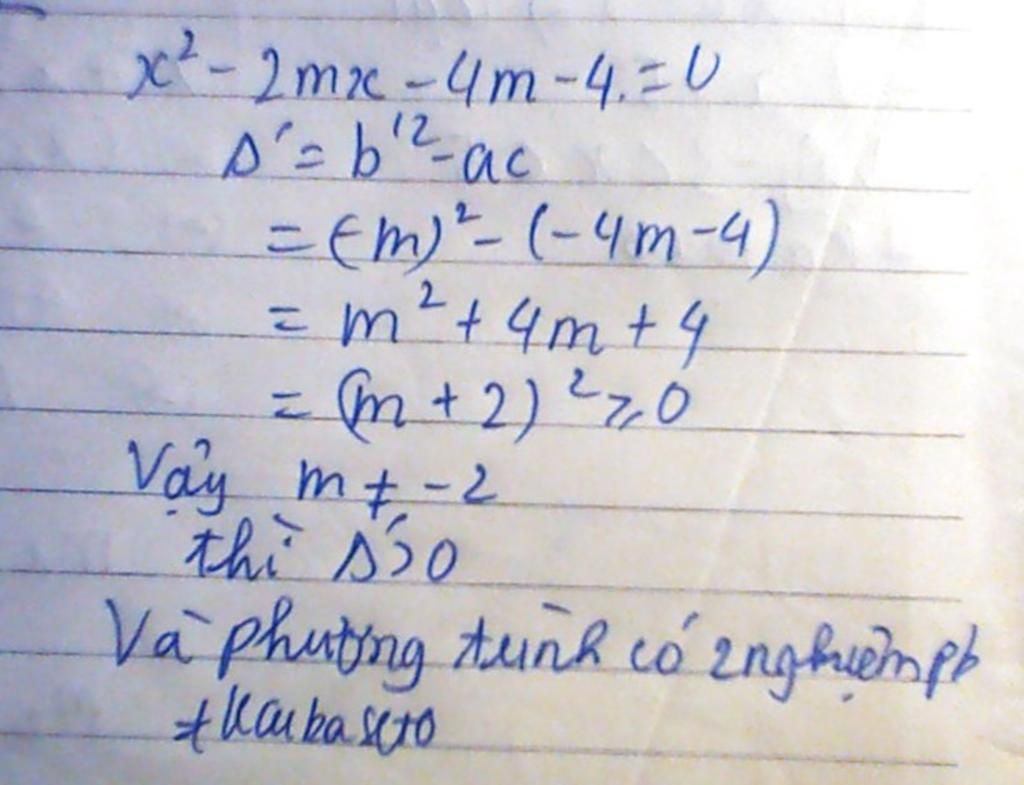 x² - 2mx - 4m - 4 = 0
Δ' = b'² - ac
= (-m)² - (-4m - 4)
= m² + 4m + 4
= (m + 2)² ≥ 0
Vậy m ≠ -2
thì Δ' > 0
Và phương trình có 2 nghiệm pb